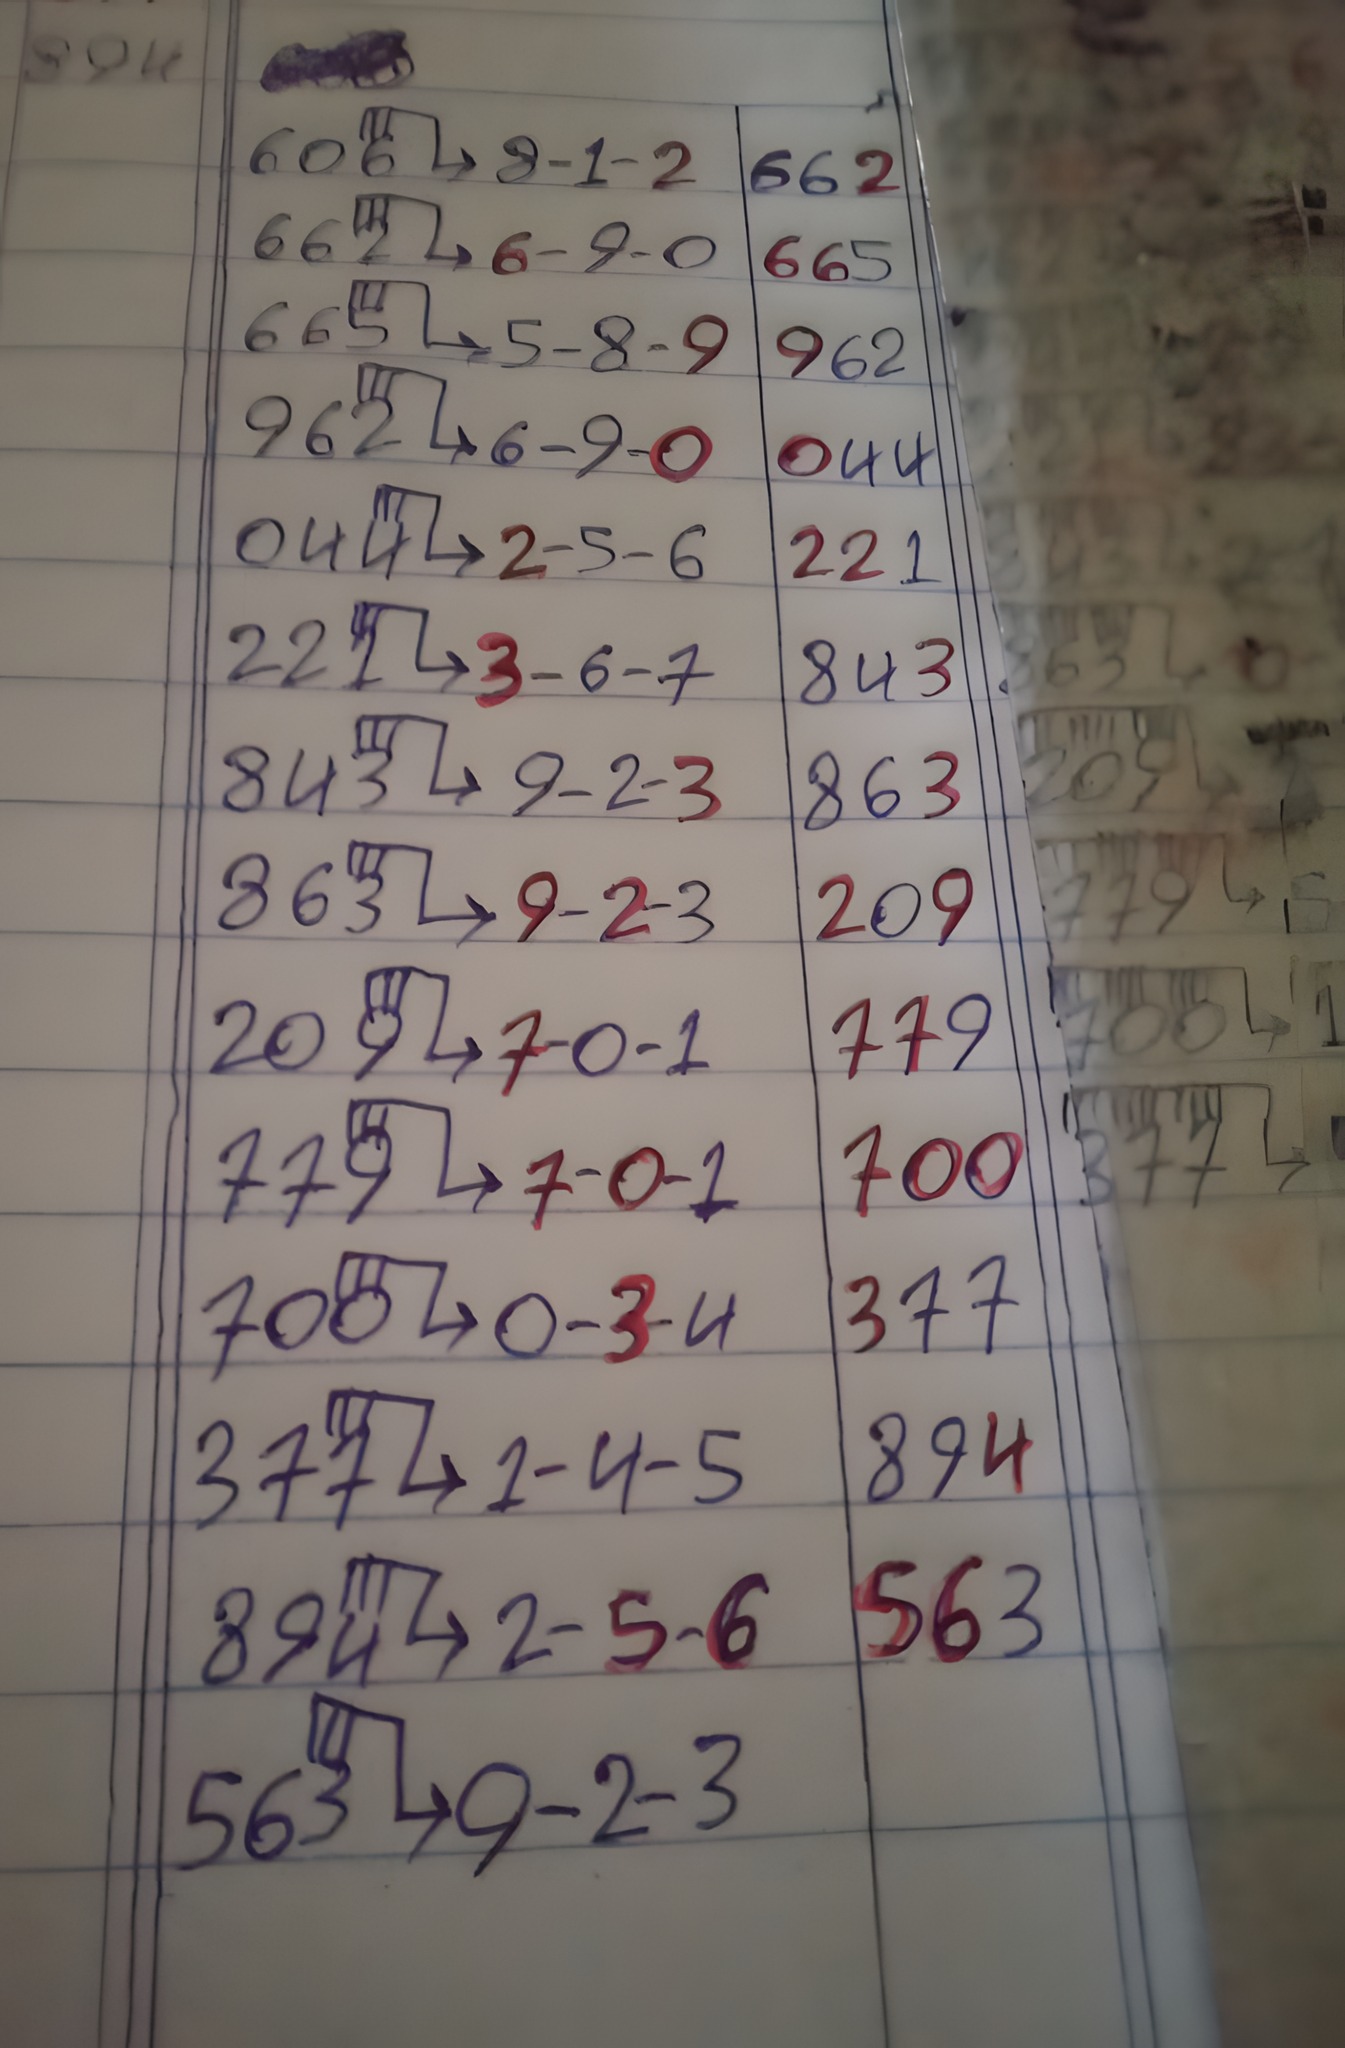 894
606 → 8-1-2 662
662 → 6-9-0 665
665 → 5-8-9 962
962 → 6-9-0 044
044 → 2-5-6 221
221 → 3-6-7 843
843 → 9-2-3 863
863 → 9-2-3 209
209 → 7-0-1 779
779 → 7-0-1 700
700 → 0-3-4 377
377 → 1-4-5 894
894 → 2-5-6 563
563 → 9-2-3
863 → 0-
209 →
779 → 5
700 → 1
377 →